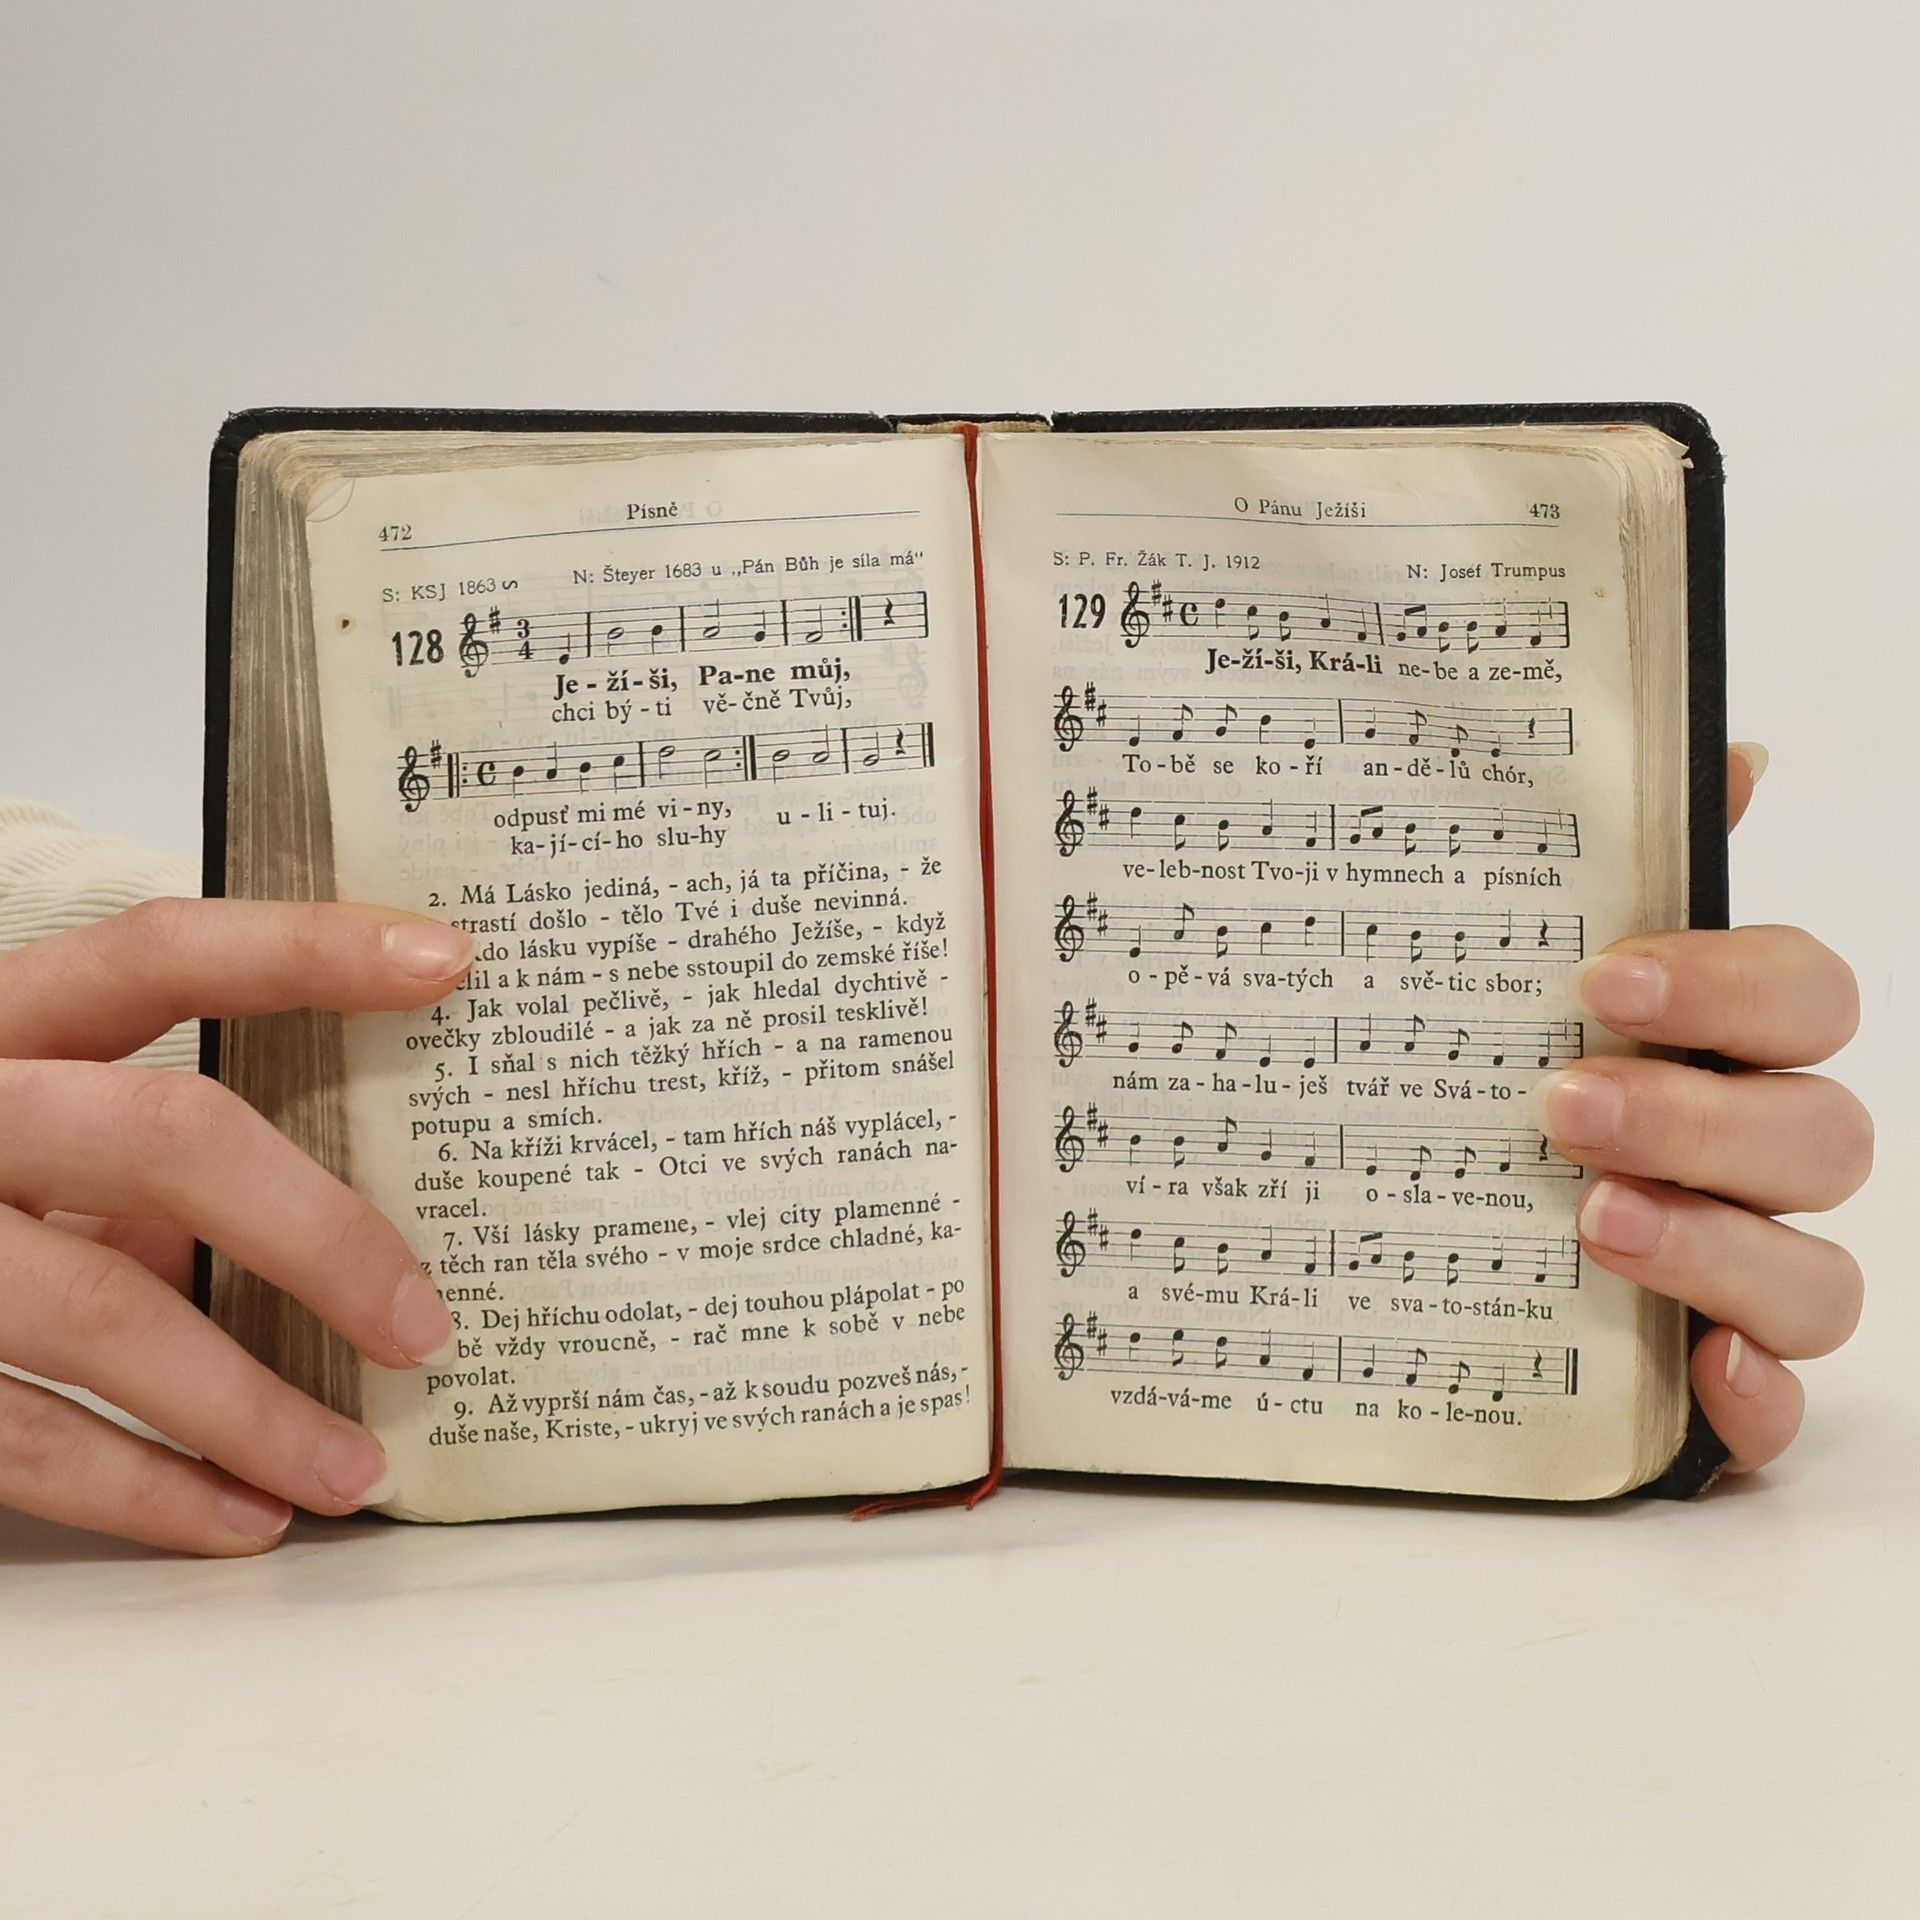 472 Písně
S: KSJ 1863 N: Šteyer 1683 u „Pán Bůh je síla má“
128
3
4
Je - ží - ši, Pa-ne můj,
chci bý - ti vě-čně Tvůj,
odpusť mi mé vi - ny, u - li - tuj.
ka-jí-cí-ho slu-hy
2. Má Lásko jediná, - ach, já ta příčina, - že
strastí došlo - tělo Tvé i duše nevinná.
lásku vypíše - drahého Ježíše, - když
a k nám - s nebe sstoupil do zemské říše!
4. Jak volal pečlivě, - jak hledal dychtivě -
ovečky zbloudilé - a jak za ně prosil tesklivě!
5. I sňal s nich těžký hřích - a na ramenou
svých - nesl hříchu trest, kříž, - přitom snášel
potupu a smích.
6. Na kříži krvácel, - tam hřích náš vyplácel, -
duše koupené tak - Otci ve svých ranách na-
vracel.
7. Vší lásky pramene, - vlej city plamenné -
z těch ran těla svého - v moje srdce chladné, ka-
menné.
8. Dej hříchu odolat, - dej touhou plápolat - po
bě vždy vroucně, - rač mne k sobě v nebe
povolat.
9. Až vyprší nám čas, - až k soudu pozveš nás, -
duše naše, Kriste, - ukryj ve svých ranách a je spas!
O Pánu Ježíši 473
S: P. Fr. Žák T. J. 1912 N: Josef Trumpus
129
Je-ží-ši, Krá-li ne-be a ze-mě,
To-bě se ko-ří an-dě-lů chór,
ve-leb-nost Tvo-ji v hymnech a písních
o-pě-vá sva-tých a svě-tic sbor;
nám za-ha-lu-ješ tvář ve Svá-to-
ví-ra však zří ji o-sla-ve-nou,
a své-mu Krá-li ve sva-to-stán-ku
vzdá-vá-me ú-ctu na ko-le-nou.